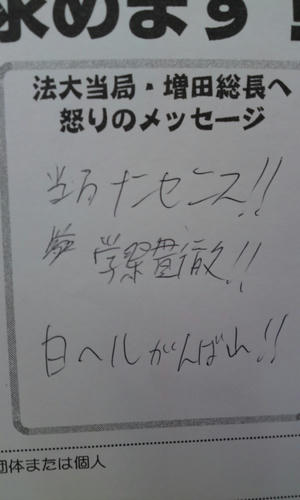 求めます!
法大当局・増田総長へ
怒りのメッセージ
当局ナンセンス!!
学祭貫徹!!
白ヘルがんば山!!
団体または個人